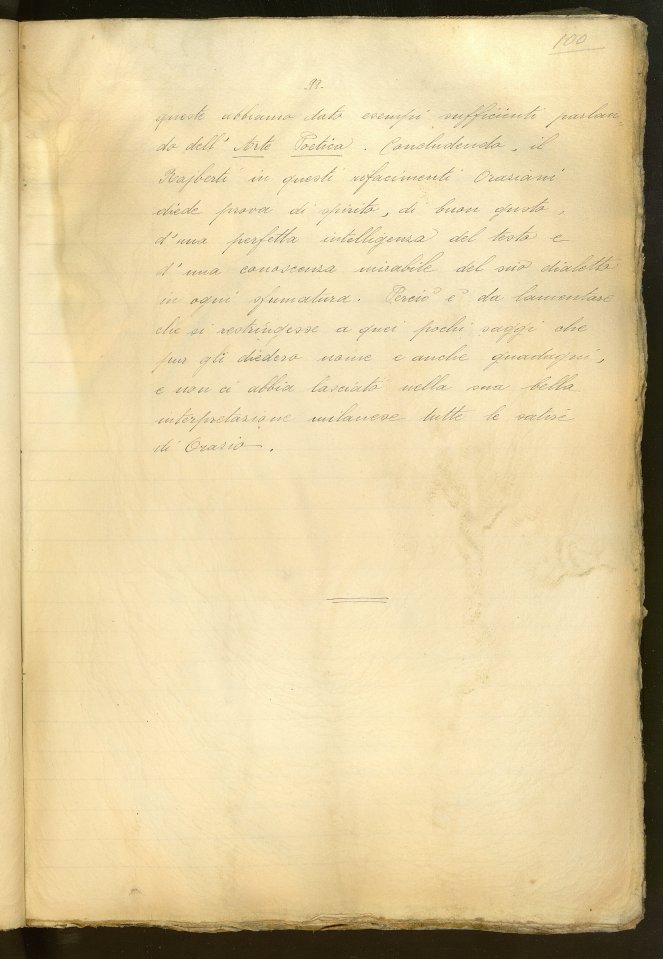 100
99.
queste abbiamo dato esempi sufficienti parlan-
do dell' Arte Poetica. Concludendo, il
Rajberti in questi rifacimenti Oraziani
diede prova di spirito, di buon gusto,
d'una perfetta intelligenza del testo e
d'una conoscenza mirabile del suo dialetto
in ogni sfumatura. Perciò è da lamentare
che si restringesse a quei pochi saggi che
pur gli diedero nome e anche guadagni,
e non ci abbia lasciato nella sua bella
interpretazione milanese tutte le satire
di Orazio.